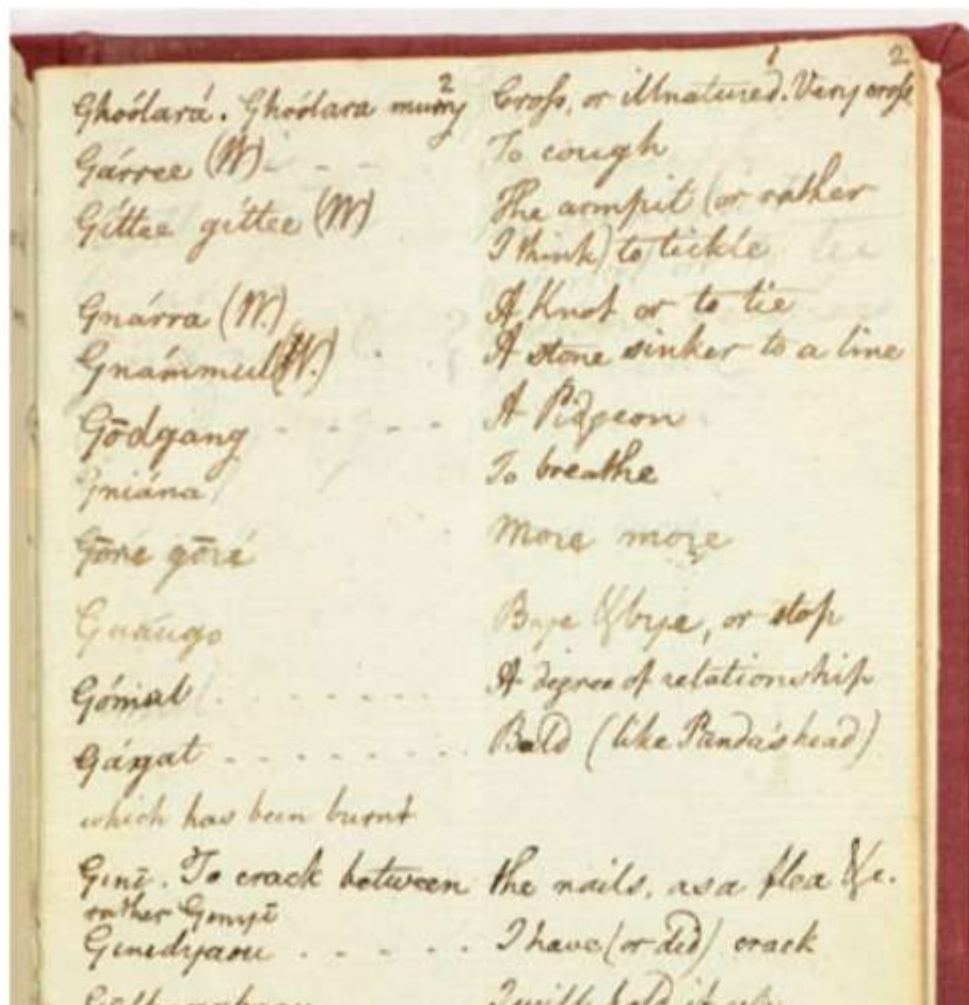 2
Ghoólará. Ghoólara murry 2 Cross, or illnatured. Very cross 1
Gárree (W) - - - To cough
Gíttee gíttee (W) The armpit (or rather
I think) to tickle
Gnárra (W.) A Knot or to tie
Gnámmul (W.) A stone sinker to a line
Gōdgang - - - - - A Pidgeon
Gniána To breathe
Gōré gōré More more
Gnáugo Bye & bye, or stop
Gómul . - - - - - - A degree of relationship
Gágat - - - - - - - Bald (like Panda's head)
which has been burnt
Ginī. To crack between the nails, as a flea &c.
rather
Ginidyaou - - - - - I have (or did) crack